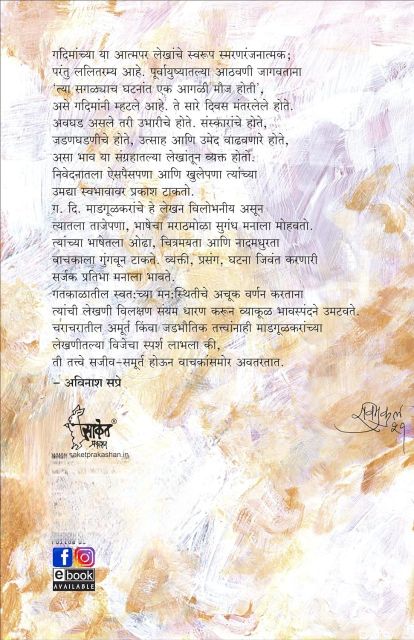 गदिमांच्या या आत्मपर लेखांचे स्वरूप स्मरणरंजनात्मक;
परंतु ललितरम्य आहे. पूर्वायुष्यातल्या आठवणी जागवताना
‘त्या सगळ्याच घटनांत एक आगळी मौज होती’,
असे गदिमांनी म्हटले आहे. ते सारे दिवस मंतरलेले होते.
अवघड असले तरी उभारीचे होते. संस्कारांचे होते,
जडणघडणीचे होते, उत्साह आणि उमेद वाढवणारे होते,
असा भाव या संग्रहातल्या लेखांतून व्यक्त होतो.
निवेदनातला ऐसपैसपणा आणि खुलेपणा त्यांच्या
उमद्या स्वभावावर प्रकाश टाकतो.
ग. दि. माडगूळकरांचे हे लेखन विलोभनीय असून
त्यातला ताजेपणा, भाषेचा मराठमोळा सुगंध मनाला मोहवतो.
त्यांच्या भाषेतला ओढा, चित्रमयता आणि नादमधुरता
वाचकाला गुंगवून टाकते. व्यक्ती, प्रसंग, घटना जिवंत करणारी
सर्जक प्रतिभा मनाला भावते.
गतकाळातील स्वत:च्या मन:स्थितीचे अचूक वर्णन करताना
त्यांची लेखणी विलक्षण संयम धारण करून व्याकूळ भावस्पंदने उमटवते.
चराचरातील अमूर्त किंवा जडभौतिक तत्त्वांनाही माडगूळकरांच्या
लेखणीतल्या विजेचा स्पर्श लाभला की,
ती तत्त्वे सजीव-समूर्त होऊन वाचकांसमोर अवतरतात.
– अविनाश सप्रे
साकेत®
प्रकाशन
www.saketprakashan.in
FOLLOW US
f
ebook
AVAILABLE